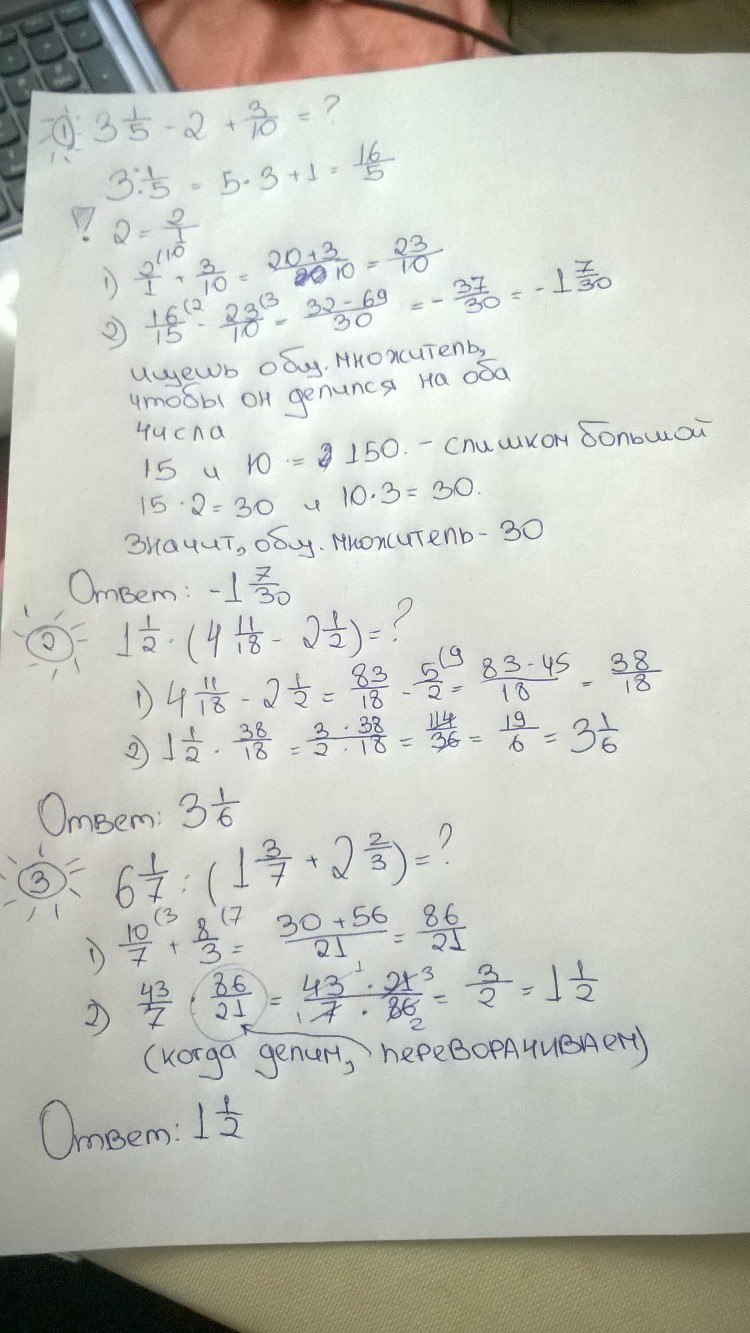 1) 3 1/5 - 2 + 3/10 = ?
3 1/5 = 5·3+1 = 16/5
! 2 = 2/1
1) 2/1 (10 + 3/10 = 20+3/10 = 23/10
2) 16/15 (2 - 23/10 (3 = 32-69/30 = - 37/30 = -1 7/30
ищешь общ. множитель,
чтобы он делился на оба
числа
15 и 10 = 150. - слишком большой
15·2=30 и 10·3=30.
Значит, общ. множитель - 30
Ответ: -1 7/30
2 1 1/2 · (4 11/18 - 2 1/2) = ?
1) 4 11/18 - 2 1/2 = 83/18 - 5/2 (9 = 83-45/18 = 38/18
2) 1 1/2 · 38/18 = 3·38/2·18 = 114/36 = 19/6 = 3 1/6
Ответ: 3 1/6
3 6 1/7 : (1 3/7 + 2 2/3) = ?
1) 10/7 (3 + 8/3 (7 = 30+56/21 = 86/21
2) 43/7 · 86/21 = 43 1 · 21 3/1 7 · 86 2 = 3/2 = 1 1/2
(когда делим, переворачиваем)
Ответ: 1 1/2